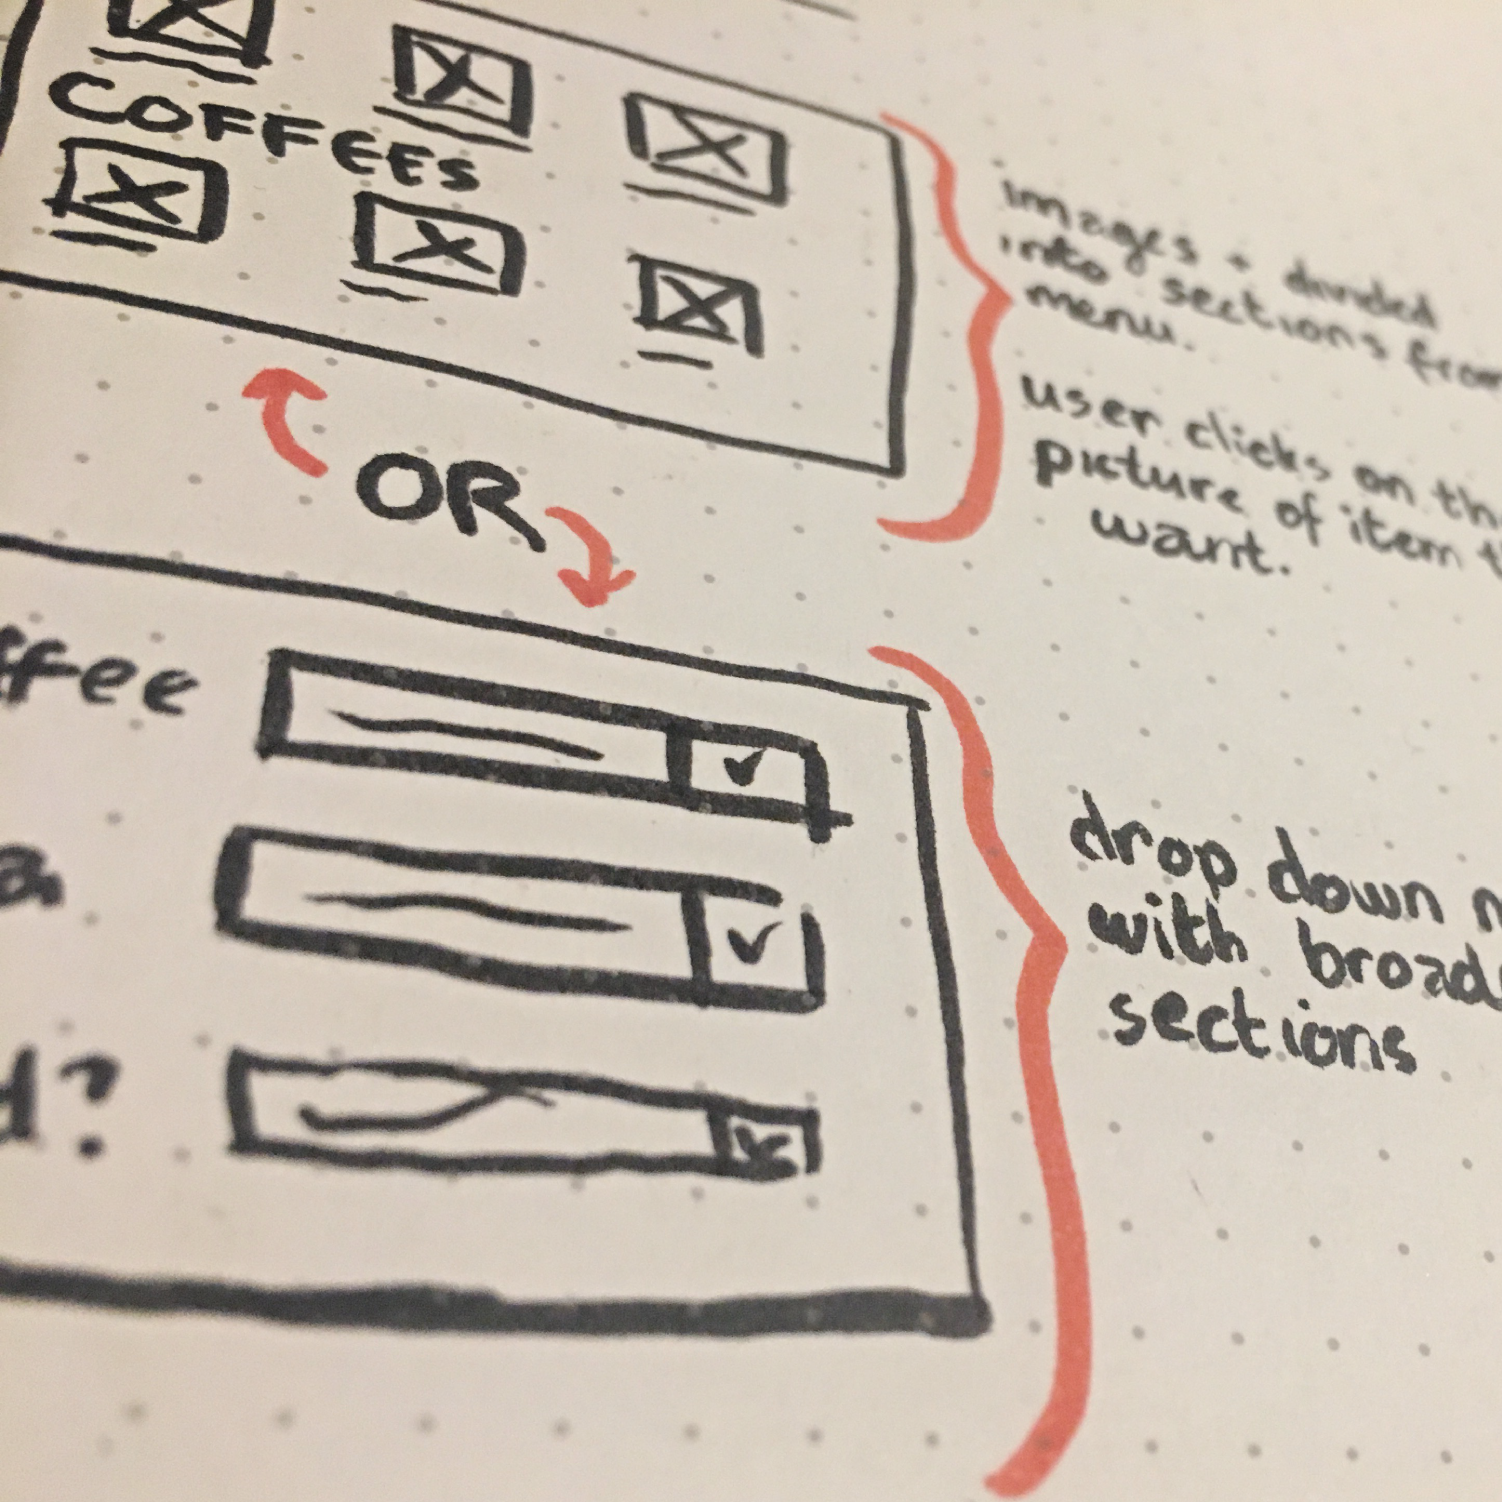 COFFEES
images + divided
into sections from
menu.
user clicks on
picture of item
want.
OR
drop down
with
sections